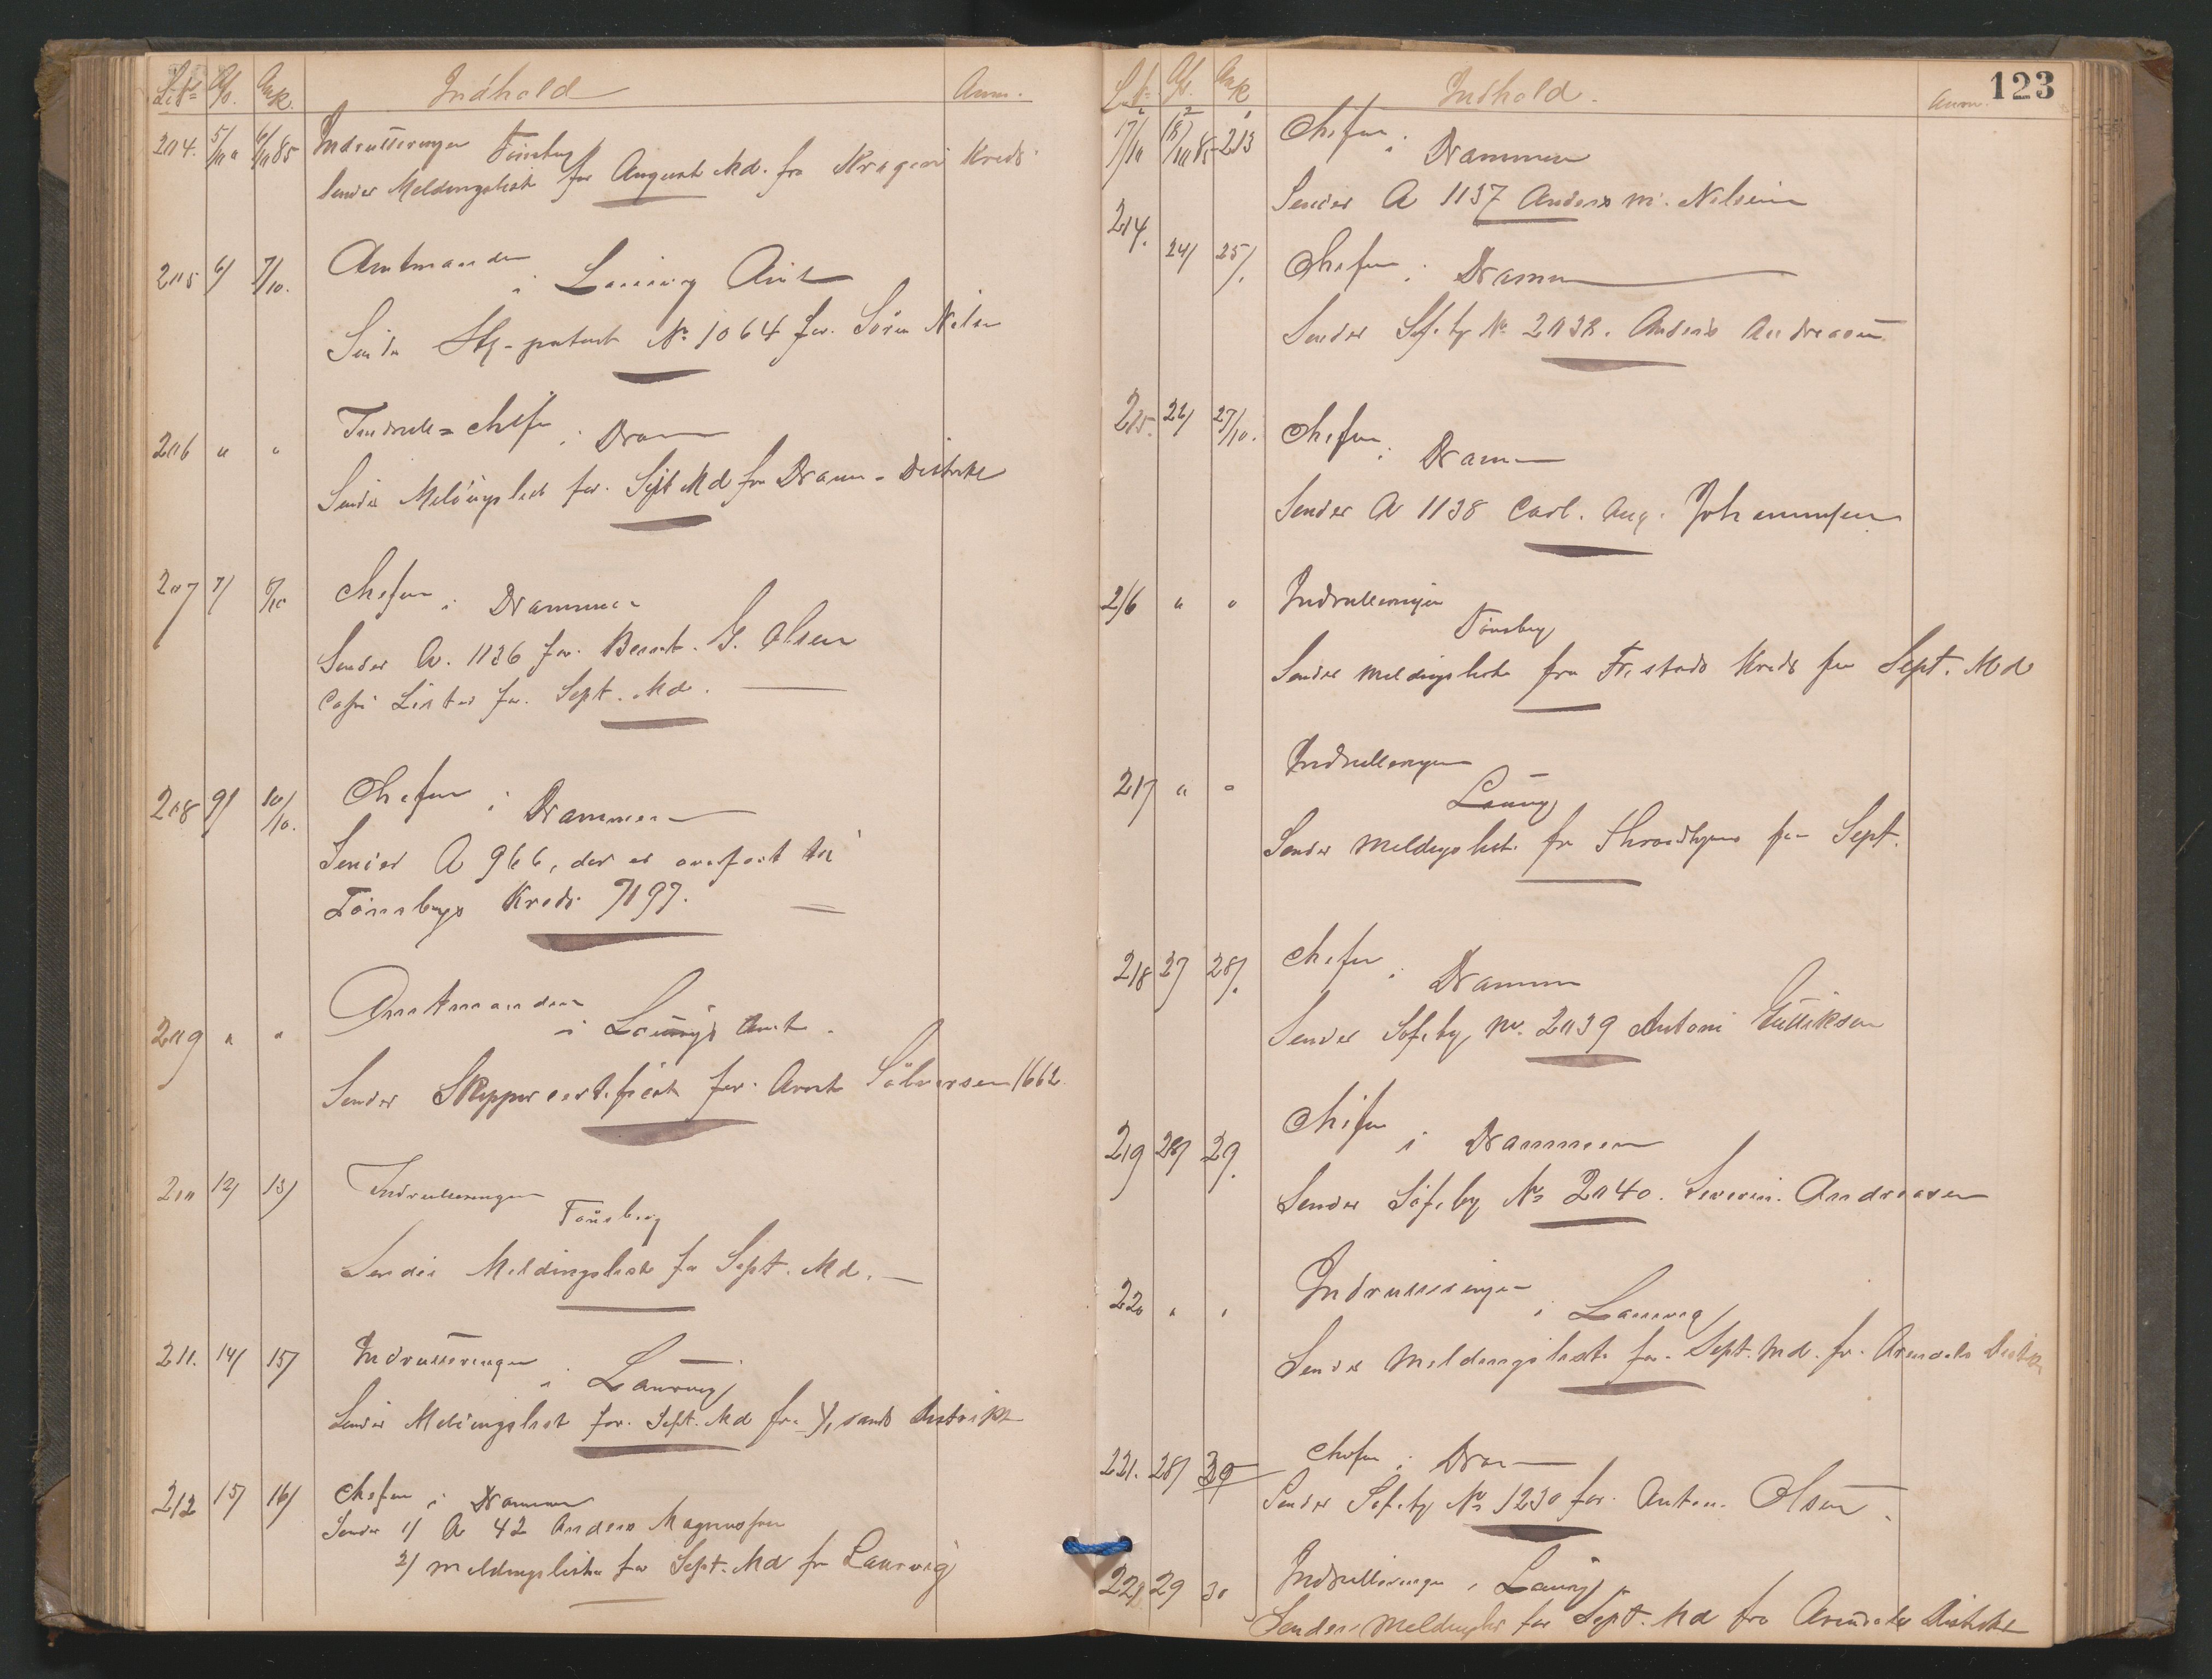 Lb= Afs. Ank. Indhold Anm.
204. 5/10 6/10 85 Indrulleringen Tönsberg
Sender Meldingslist for August Md. fra Kragerö Kreds
205 6/ 7/10. Amtmanden
i Laurvig Amt
Sender patent No 1064 for Sören Nilsen
206 " " Indrull=chefen i Dram
Sender Meldingslist for Sept Md fra Dram- Distrikt
207 7/ 8/10 Chefen i Drammen
Sender A. 1136 for Bernt. G. Olsen
Lister for Sept. Md.
208 9/ 10/10. Chefen i Drammen
Sender A 966, der er overfört til
Tönsbergs Kreds 7197.
209 " " Amtmanden
i Laurvigs Amt.
Sender Skippercertificat for Arnt Sölversen 1662
210 12/ 13/ Indrulleringen
Tönsberg
Sender Meldingslist for Sept. Md.
211. 14/ 15/ Indrulleringen
i Laurvig
Sender Meldingslist for Sept. Md fra distrikt
212 15/ 16/ Chefen i Drammen
Sender 1/ A 42 Anders Magnussen
2/ meldingsliste for Sept. Md fra Laurvig
123
Lb= Afs. Ank Indhold. Anm.
17/10 18/10 85 213 Chefen i Drammen
Sender A 1137 Anders M. Nilsen
214. 24/ 25/. Chefen i Drammen
Sender Söf.by No 2038. Anders Andreasen
215. 26/ 27/10. Chefen i Drammen
Sender A 1138 Carl. Aug. Johannessen
216 " " Indrulleringen
Tönsberg
Sender meldingsliste fra Fr.stads Kreds for Sept. Md
217 " " Indrulleringen
Laurvig
Sender meldingsliste fra for Sept.
218 27 28/. Chefen i Drammen
Sender Söf.by No. 2039 Antoni Gulliksen
219 28/ 29. Chefen i Drammen
Sender Söf.by No 2040. Severin. Andreasen
220 " " Indrulleringen
i Laurvig
Sender Meldingsliste for Sept. Md. fr. Arendals Distr
221. 28/ 29 Chefen i Dram
Sender Söf.by No 1230 for Anton. Olsen.
222 29 30 Indrulleringen i Laurvig
Sender Meldingsl for Sept. Md fra Arendals Distrikt